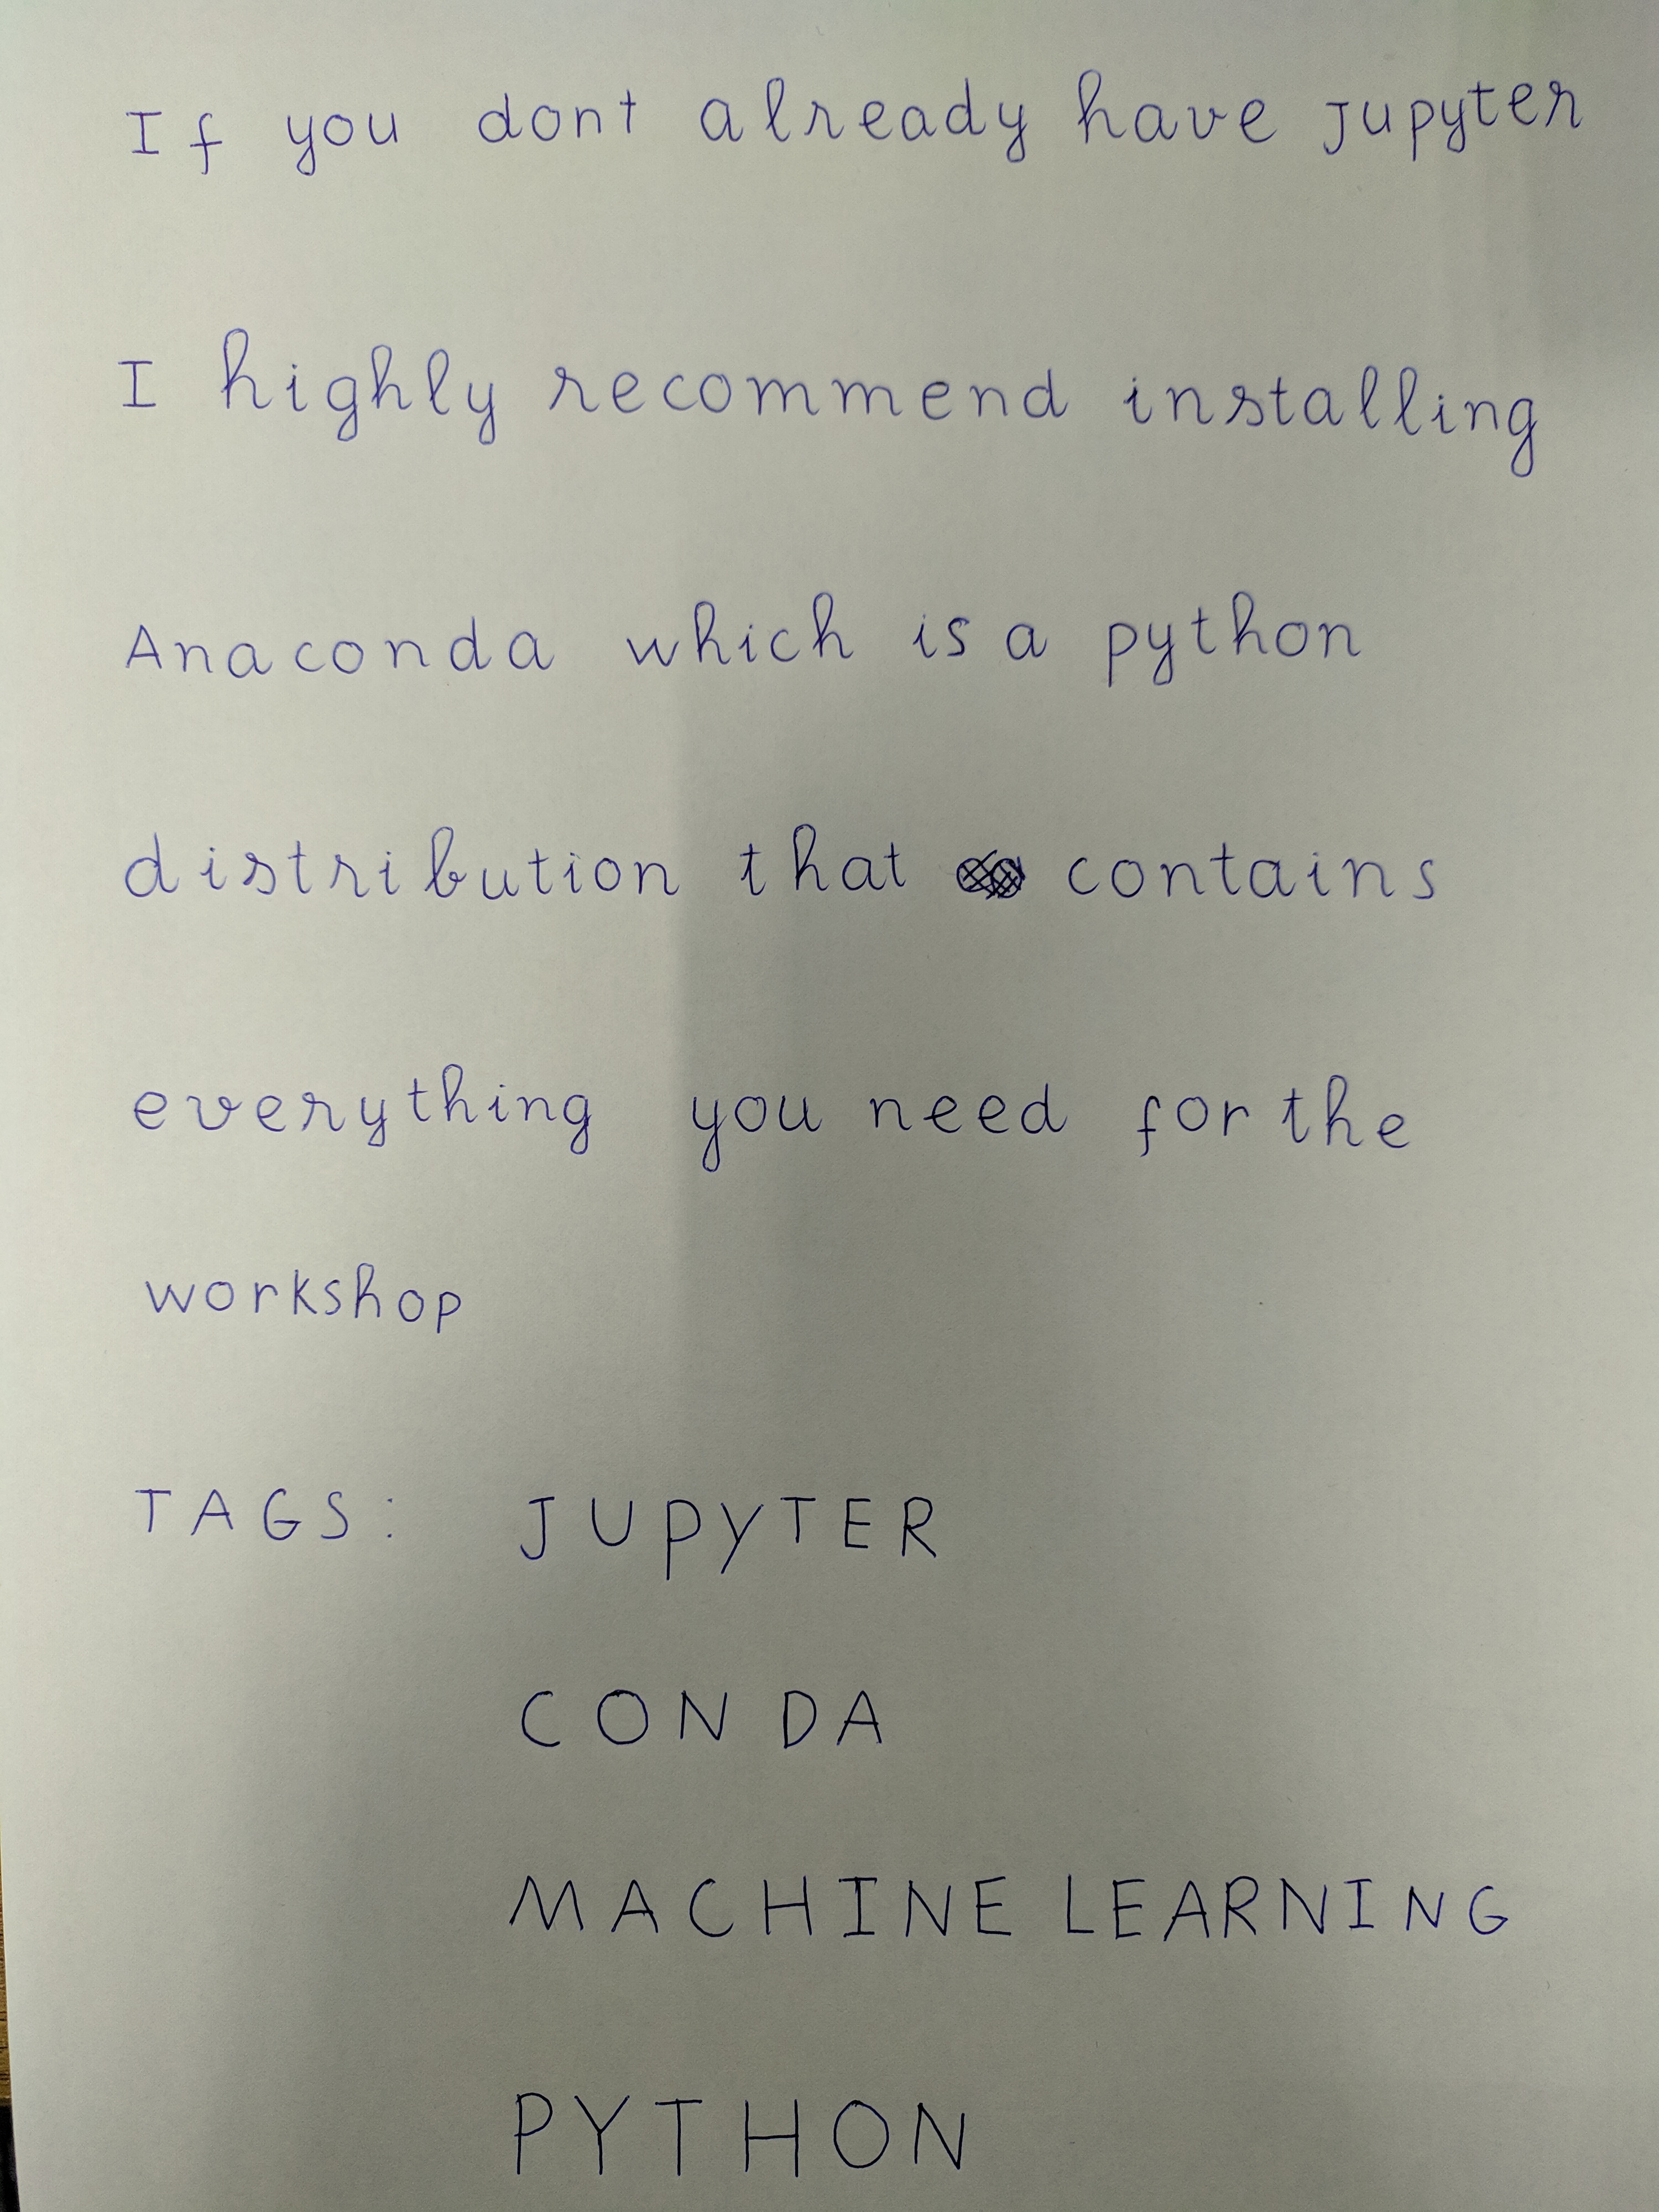 If you dont already have jupyter
I highly recommend installing
Anaconda which is a python
distribution that contains
everything you need for the
workshop
TAGS: JUPYTER
CONDA
MACHINE LEARNING
PYTHON